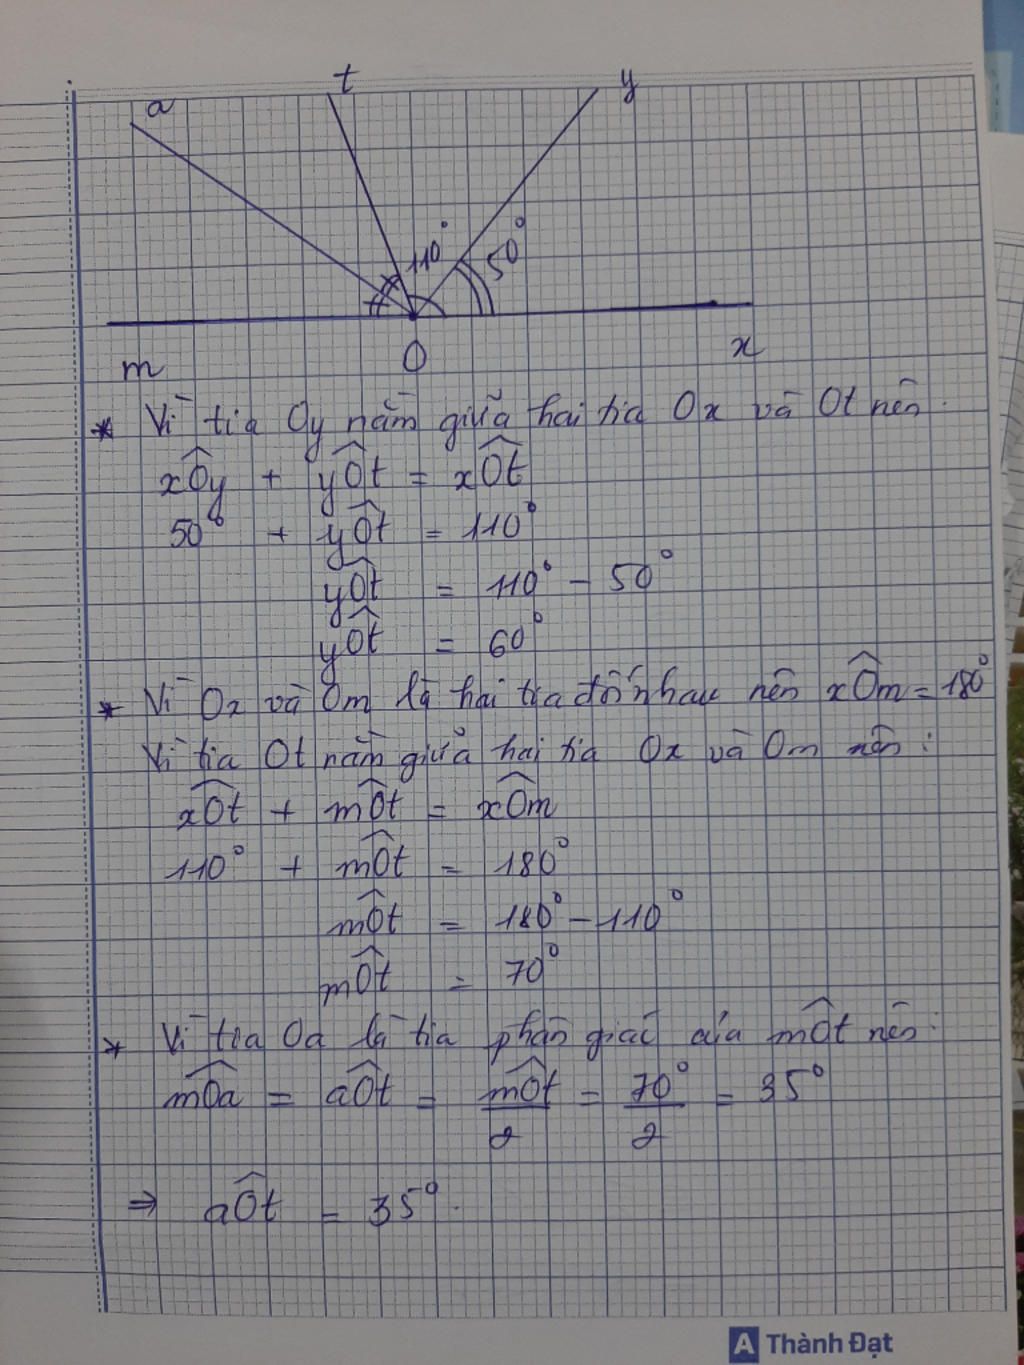 a t y
110° 50°
m O x
* Vì tia Oy nằm giữa hai tia Ox và Ot nên.
xÔy + yÔt = xÔt
50° + yÔt = 110°
yÔt = 110° - 50°
yÔt = 60°
* Vì Ox và Om là hai tia đối nhau nên xÔm = 180°
Vì tia Ot nằm giữa hai tia Ox và Om nên:
xÔt + mÔt = xÔm
110° + mÔt = 180°
mÔt = 180° - 110°
mÔt = 70°
* Vì tia Oa là tia phân giác của mÔt nên:
mÔa = aÔt = mÔt/2 = 70°/2 = 35°
⇒ aÔt = 35°.
A Thành Đạt